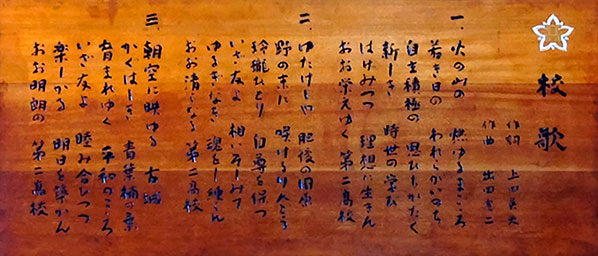 校歌
作詞 上田英夫
作曲 出田憲二
一、火の山の 燃ゆるまごころ
若き日の われらがいのち
自主積極の 思ひもかたく
新しき 時世の学び
はげみつつ 理想に生きん
おお栄えゆく 第二高校
二、ゆたけしや 肥後の国原
野の末に 咲けるりんどう
玲瓏ひとり 自尊を保つ
いざ友よ 相いそしみて
ゆるぎなき 魂をし錬らん
おお清らなる 第二高校
三、朝空に映ゆる 古城
かぐはしき 青葉楠の葉
育まれゆく 平和のこころ
いざ友よ 睦み合ひつつ
楽しかる 明日を築かん
おお明朗の 第二高校